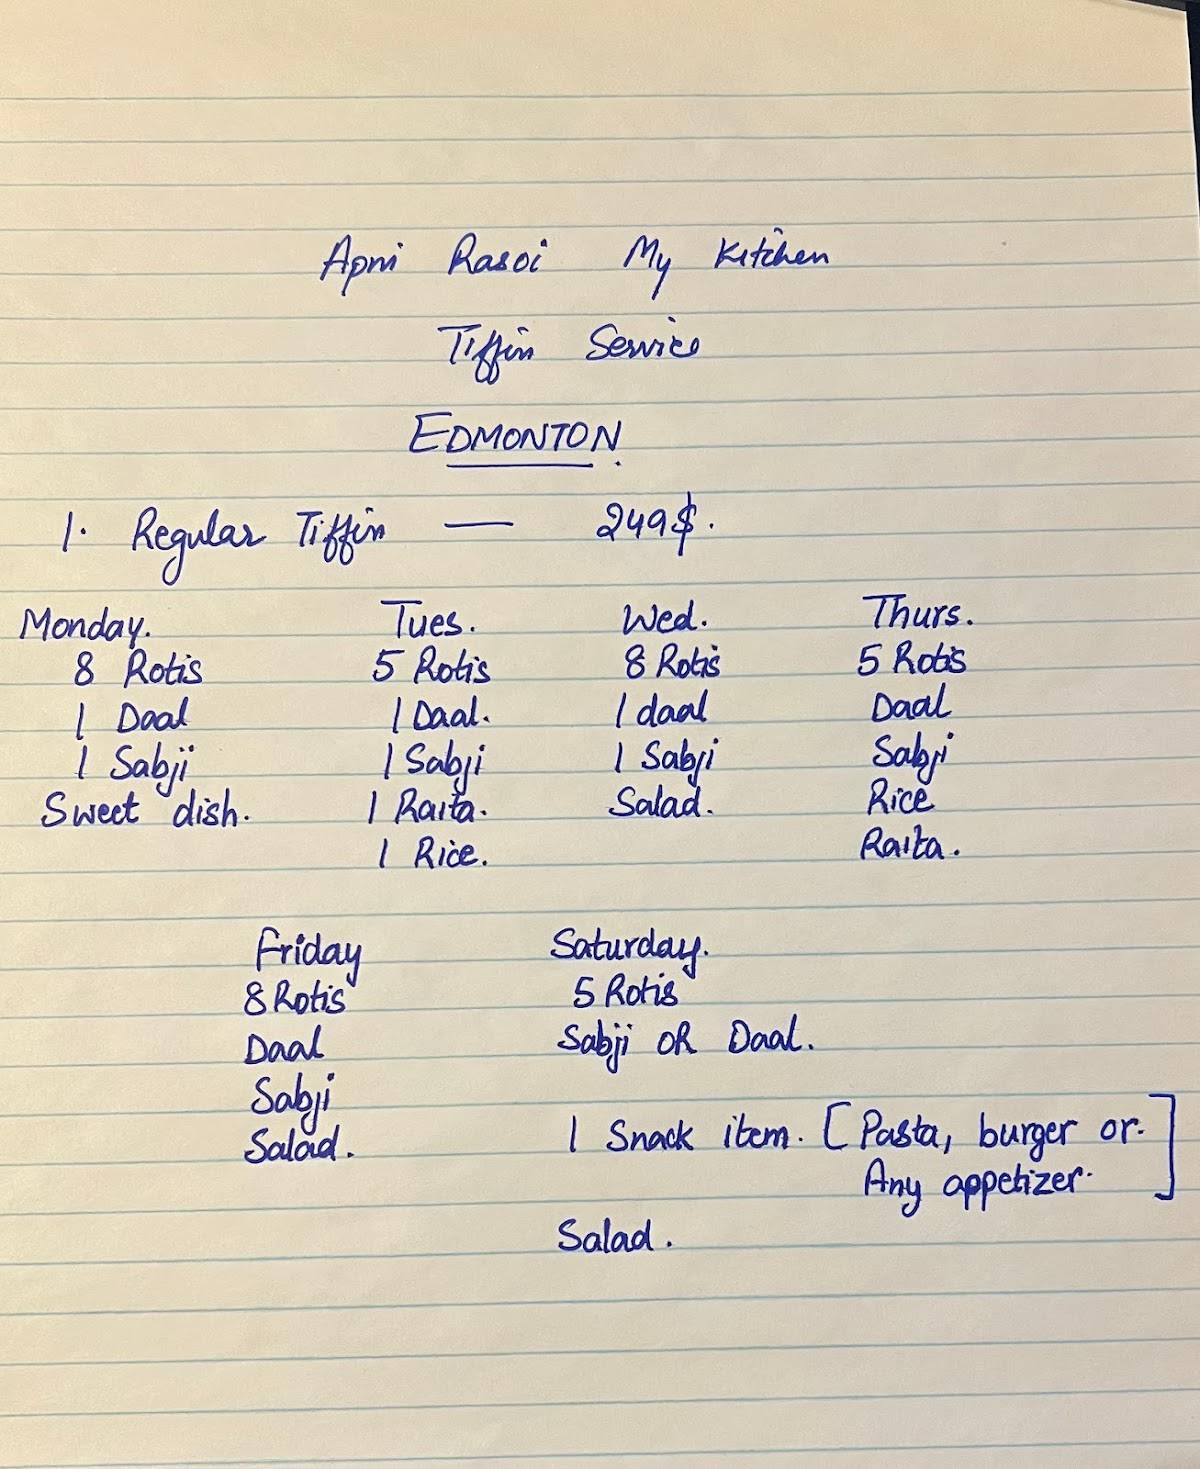 Apni Rasoi My Kitchen
Tiffin Service
EDMONTON.
1. Regular Tiffin — 249$.
Monday.
8 Rotis
1 Daal
1 Sabji
Sweet dish.
Tues.
5 Rotis
1 Daal.
1 Sabji
1 Raita.
1 Rice.
Wed.
8 Rotis
1 daal
1 Sabji
Salad.
Thurs.
5 Rotis
Daal
Sabji
Rice
Raita.
Friday
8 Rotis
Daal
Sabji
Salad.
Saturday.
5 Rotis
Sabji OR Daal.
1 Snack item. [Pasta, burger or.
Any appetizer.]
Salad.